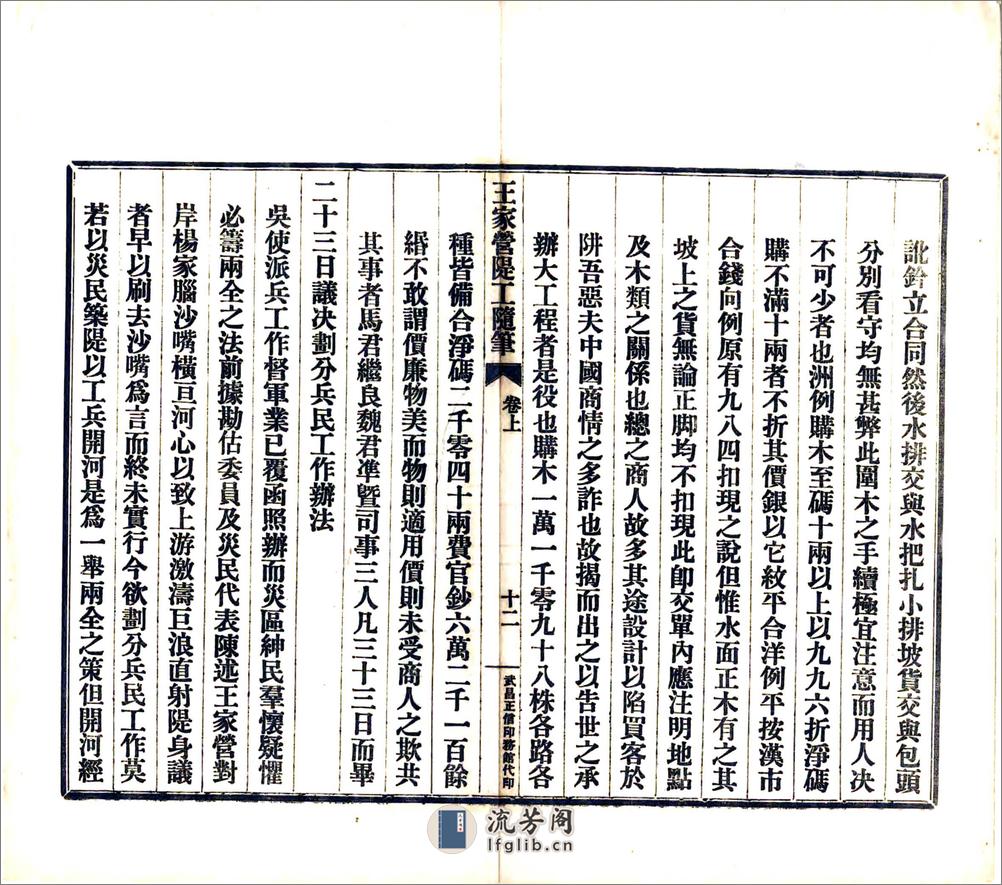 訛鈴立合同然後水排交與水把扎小排坡貨交與包頭
分別看守均無甚弊此圍木之手續極宜注意而用人决
不可少者也洲例購木至碼十兩以上以九九六折淨碼
購不滿十兩者不折其價銀以它紋平合洋例平按漢市
合錢向例原有九八四扣現之說但惟水面正木有之其
坡上之貨無論正脚均不扣現此卽交單內應注明地點
及木類之關係也總之商人故多其途設計以陷買客於
阱吾惡夫中國商情之多詐也故揭而出之以告世之承
辦大工程者是役也購木一萬一千零九十八株各路各
王家營隄工隨筆 卷上 十二 武昌正信印務館代印
種皆備合淨碼二千零四十兩費官鈔六萬二千一百餘
緡不敢謂價廉物美而物則適用價則未受商人之欺共
其事者馬君繼良魏君準暨司事三人凡三十三日而畢
二十三日議决劃分兵民工作辦法
吳使派兵工作督軍業已覆函照辦而災區紳民羣懷疑懼
必籌兩全之法前據勘估委員及災民代表陳述王家營對
岸楊家腦沙嘴橫亘河心以致上游激濤巨浪直射隄身議
者早以刷去沙嘴爲言而終未實行今欲劃分兵民工作莫
若以災民築隄以工兵開河是爲一舉兩全之策但開河經
流芳阁
lfglib.cn